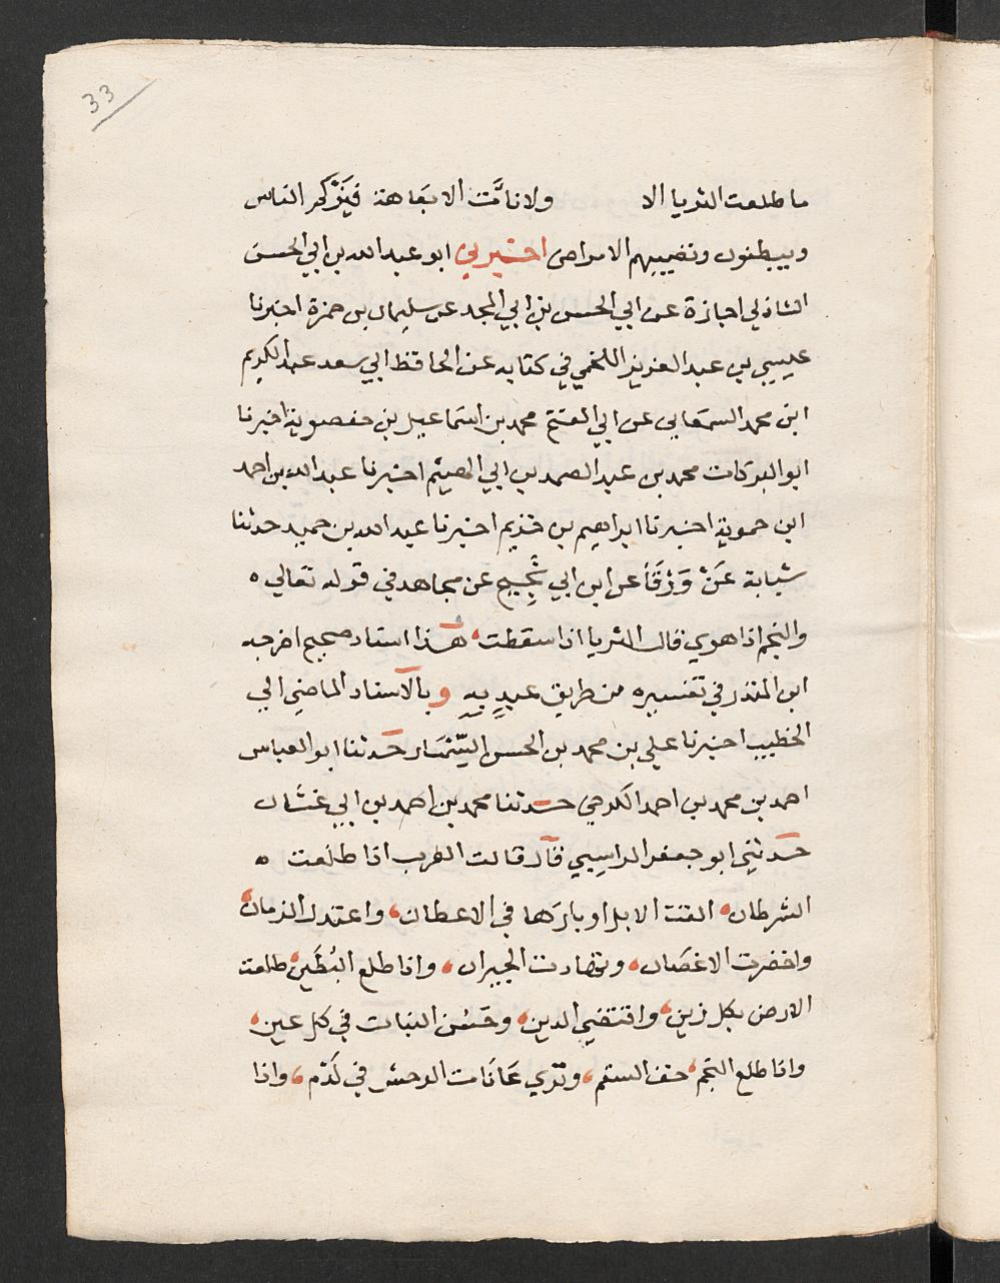 33
ما طلعت الثريا الا ولا نامَّت الا بعَاهة فيَزْكر الناس
ويبطنون وتصيبهم الامراض اخبرني ابو عبد الله بن ابي الحسن
الشاذلي اجازة عن ابي الحسن بن ابي المجد عن سليمان بن حمزة اخبرنا
عيسي بن عبد العزيز اللخمي في كتابه عن الحافظ ابي سعد عبد الكريم
ابن محمد السمعاني عن ابي الفتح محمد بن اسماعيل بن حفصوية اخبرنا
ابو البركات محمد بن عبد الصمد بن ابي الهيثم اخبرنا عبد الله بن احمد
ابن حموية اخبرنا ابراهيم بن خزيم اخبرنا عبد الله بن حميد حدثنا
شبابة عَنْ وَرْقَأ عن ابن ابي نَجِيح عن مجاهد في قوله تعالي ه
والنجم اذا هوي قال الثريا اذا سقطت، هذا اسناد صحيح اخرجه
ابن المنذر في تفسيره من طريق عبيدٍ بهِ وبالاسناد الماضي الي
الخطيب اخبرنا علي بن محمد بن الحسن السِّمْسَار حدثنا ابو العباس
احمد بن محمد بن احمد الكرجي حدثنا محمد بن احمد بن ابي غسَّان
حدثني ابو جعفر الراسِبي قال قالت العرب اذا طلعت ه
الشرطان، القت الابل اوبارَها في الاعطان، واعتدل الزمان،
واخضرت الاغصَان، وتهادت الجيران، واذا طلع البُطَين، طلعت
الارض بكل زين، واقتضي الدين، وحَسُن النبات في كل عين،
واذا طلع النجم، خف السقم، وتري عَانَات الوحش في كَدْم، واذا